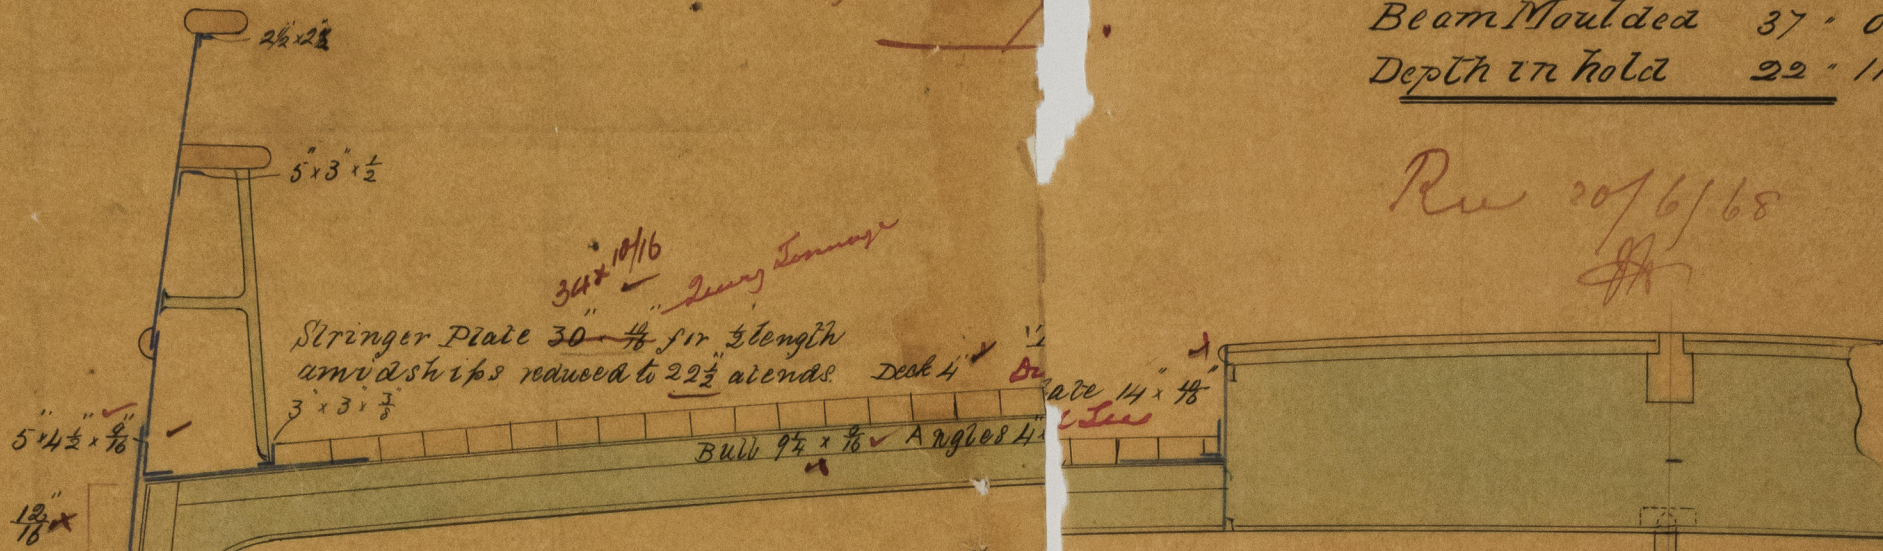 2½" × 2½"
Beam Moulded 37 " 0
Depth in hold 22 " 11
5" × 3" × ½
20/6/68
34 × 10/16
Stringer Plate 30" × 10/16" for ½ length
amidships reduced to 22½" at ends. Deck 4"
3" × 3" × 3/8
ate 14" × 10/16"
5" × 4½" × 9/16"
Bulb 9¼ × 9/16 Angles 4"
12/16"